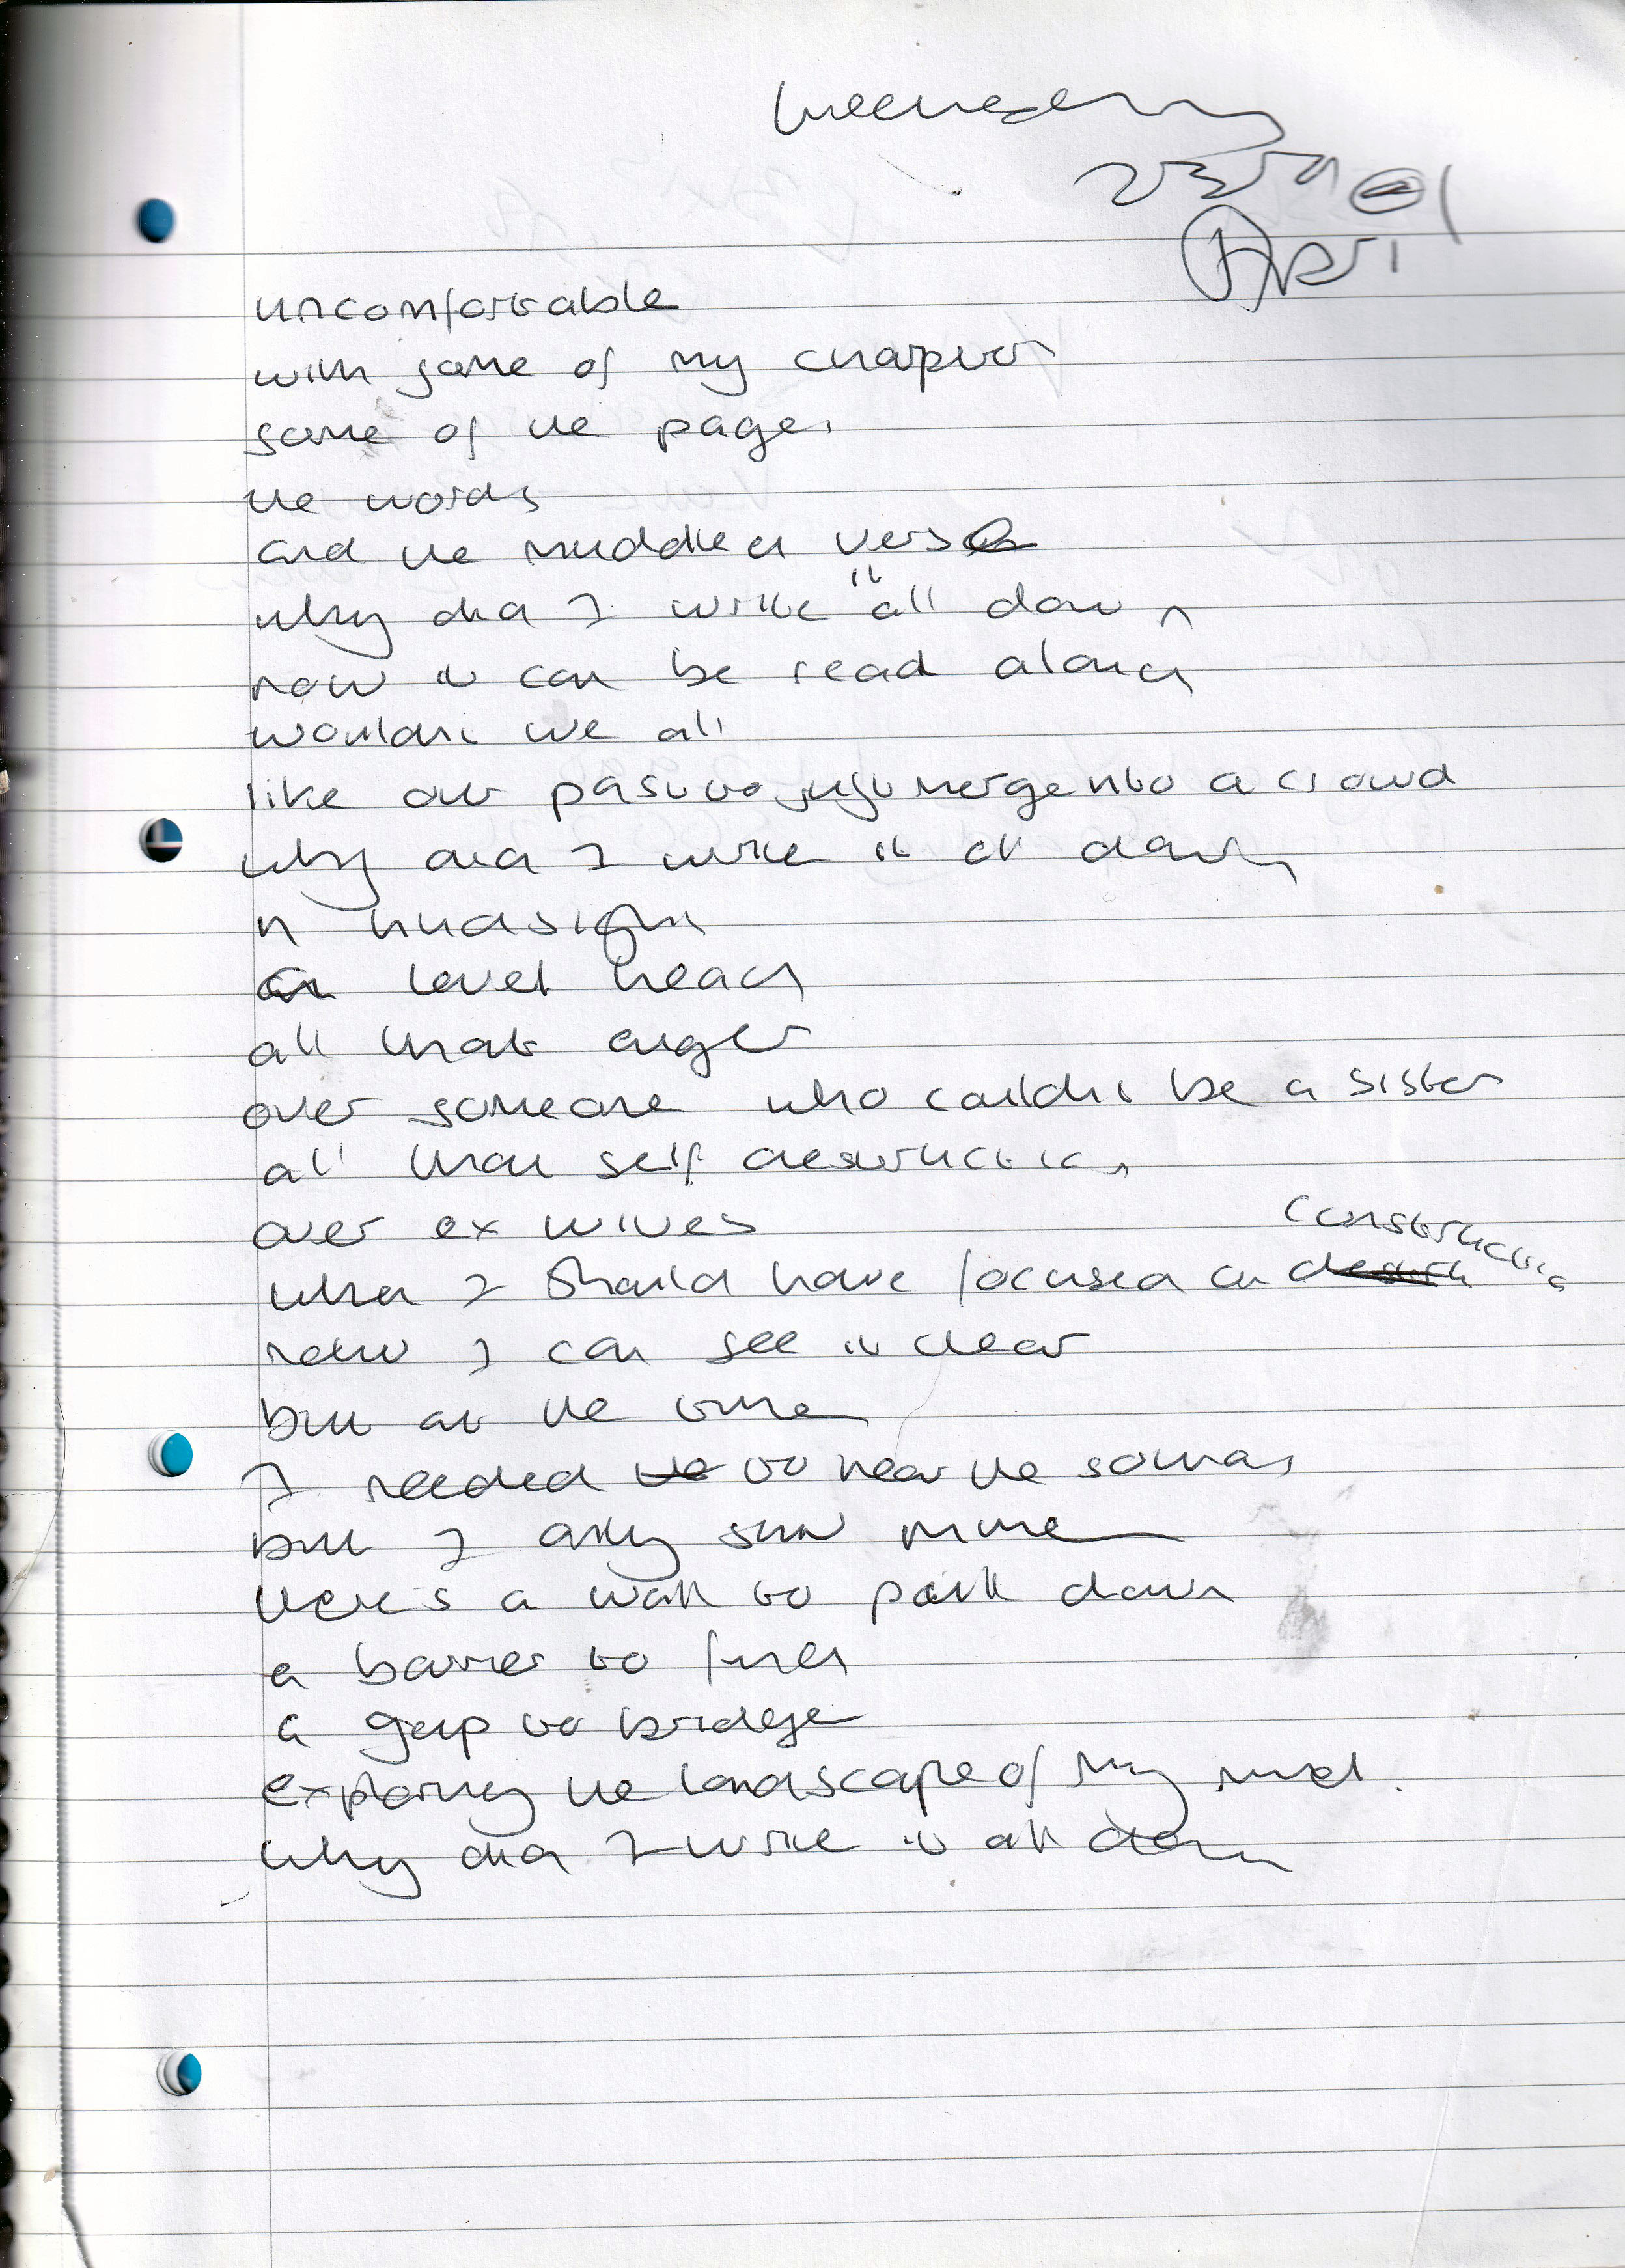 Wednesday
April
uncomfortable
with some of my chapters
some of the pages
the words
and the muddled verse
why did I write it all down
now it can be read aloud
wouldn't we all
like our past to just merge into a crowd
why did I write it all down
in hindsight
a level head
all that anger
over someone who couldn't be a sister
all that self destruction
over ex wives
when I should have focused on construction
now I can see it clear
but at the time
I needed to hear the sounds
but I only saw mine
there's a wall to pull down
a barrier to
a gap to bridge
exploring the landscape of my mind.
why did I write it all down